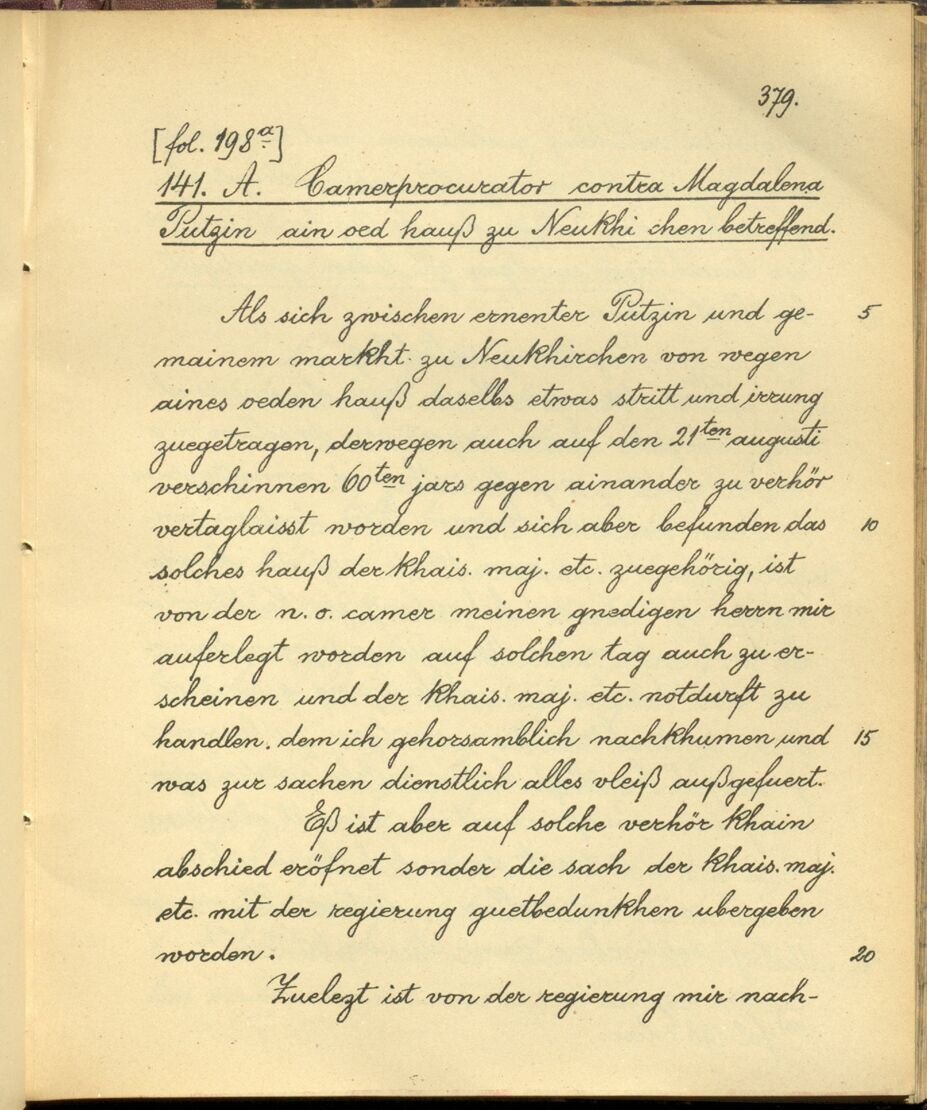 379.
[fol. 198a]
141. A. Camerprocurator contra Magdalena
Putzin ain oed hauß zu Neukhi chen betreffend.
Als sich zwischen ernenter Putzin und ge- 5
mainem markht zu Neukhirchen von wegen
aines oeden hauß daselbs etwas stritt und irrung
zuegetragen, derwegen auch auf den 21ten augusti
verschinnen 60ten jars gegen ainander zu verhör
vertaglaisst worden und sich aber befunden das 10
solches hauß der khais. maj. etc. zuegehörig, ist
von der n. o. camer meinen gnedigen herrn mir
auferlegt worden auf solchen tag auch zu er-
scheinen und der khais. maj. etc. notdurft zu
handlen. dem ich gehorsamblich nachkhumen und 15
was zur sachen dienstlich alles vleiß außgefuert.
Eß ist aber auf solche verhör khain
abschied eröfnet sonder die sach der khais. maj.
etc. mit der regierung guetbedunkhen ubergeben
worden. 20
Zuelezt ist von der regierung mir nach-